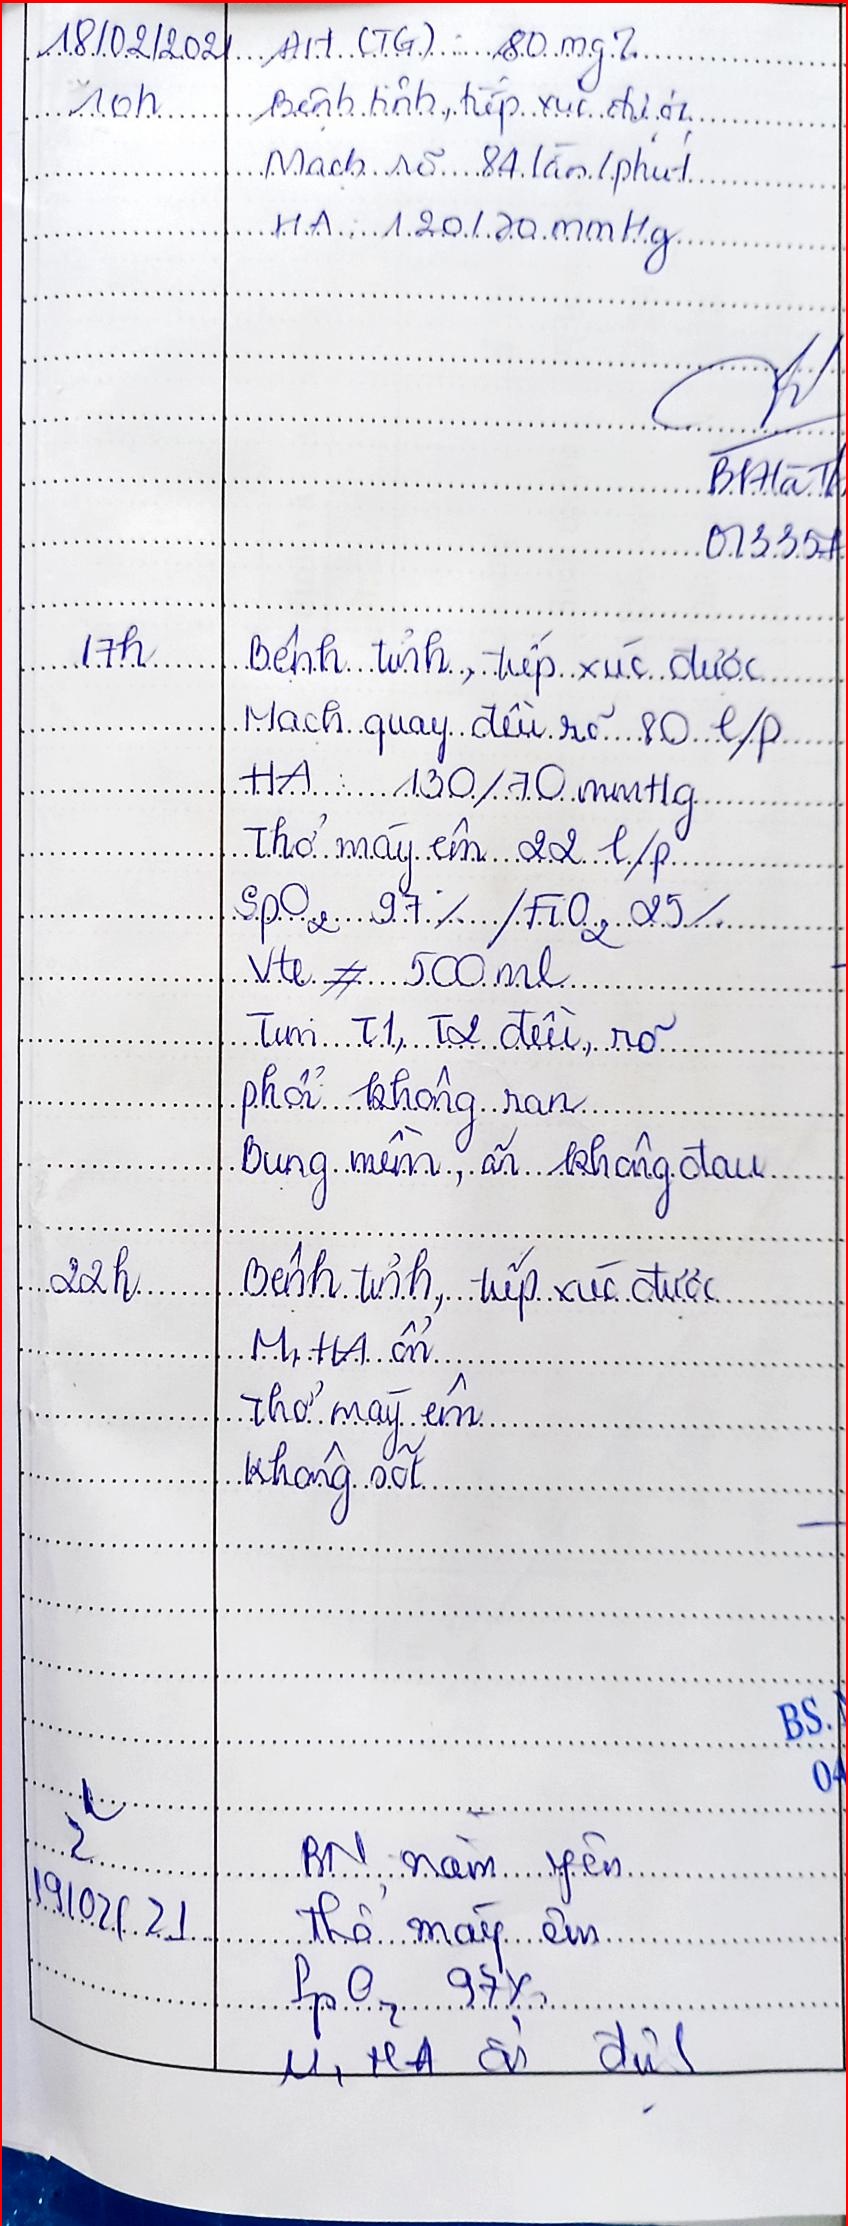 18/02/2021 ĐH (TG) : 80 mg%
10h Bệnh tỉnh, tiếp xúc được
Mạch rõ 84 lần/phút
HA : 120/70 mmHg
BS Hà Th
01335A
17h Bệnh tỉnh, tiếp xúc được
Mạch quay đều rõ 80 l/p
HA : 130/70 mmHg
Thở máy êm 22 l/p
SpO2 97% /FiO2 25%
Vte # 500 ml
Tim T1, T2 đều, rõ
phổi không ran
Bụng mềm, ấn không đau
22h Bệnh tỉnh, tiếp xúc được
M, HA ổn
Thở máy êm
Không sốt
BS.
04
2h BN nằm yên
19/02/21 Thở máy êm
SpO2 97%
M, HA ổn